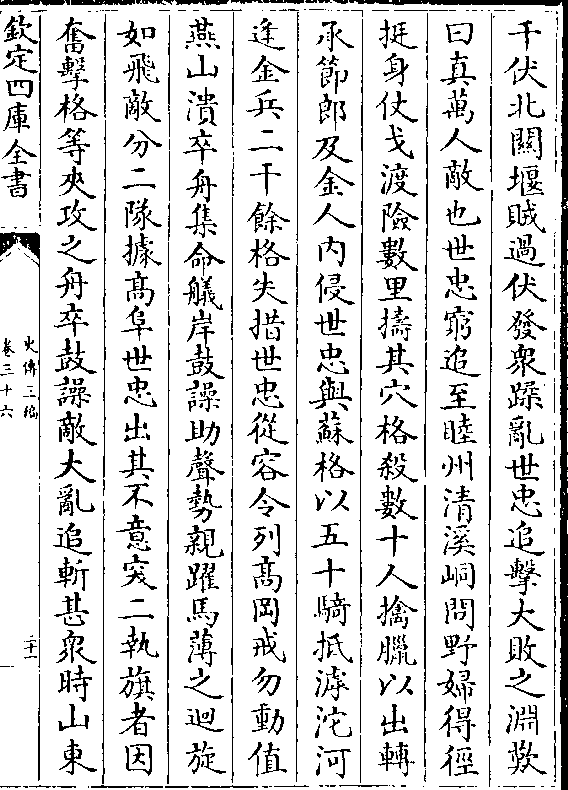 千伏北關堰賊過伏發衆蹂亂世忠追擊大敗之淵歎
曰真萬人敵也世忠窮追至睦州清溪峒問野婦得徑
挺身仗戈渡險數里擣其穴格殺數十人擒臘以出轉
承節郎及金人内侵世忠與蘇格以五十騎抵滹沱河
逢金兵二千餘格失措世忠從容令列高岡戒勿動值
燕山潰卒舟集命艤岸鼓譟助聲勢親躍馬薄之迴旋
如飛敵分二隊據高阜世忠出其不意突二執旗者因
奮擊格等夾攻之舟卒鼓譟敵大亂追斬甚衆時山東
欽定四庫全書
史傳三編
卷三十六
二十一